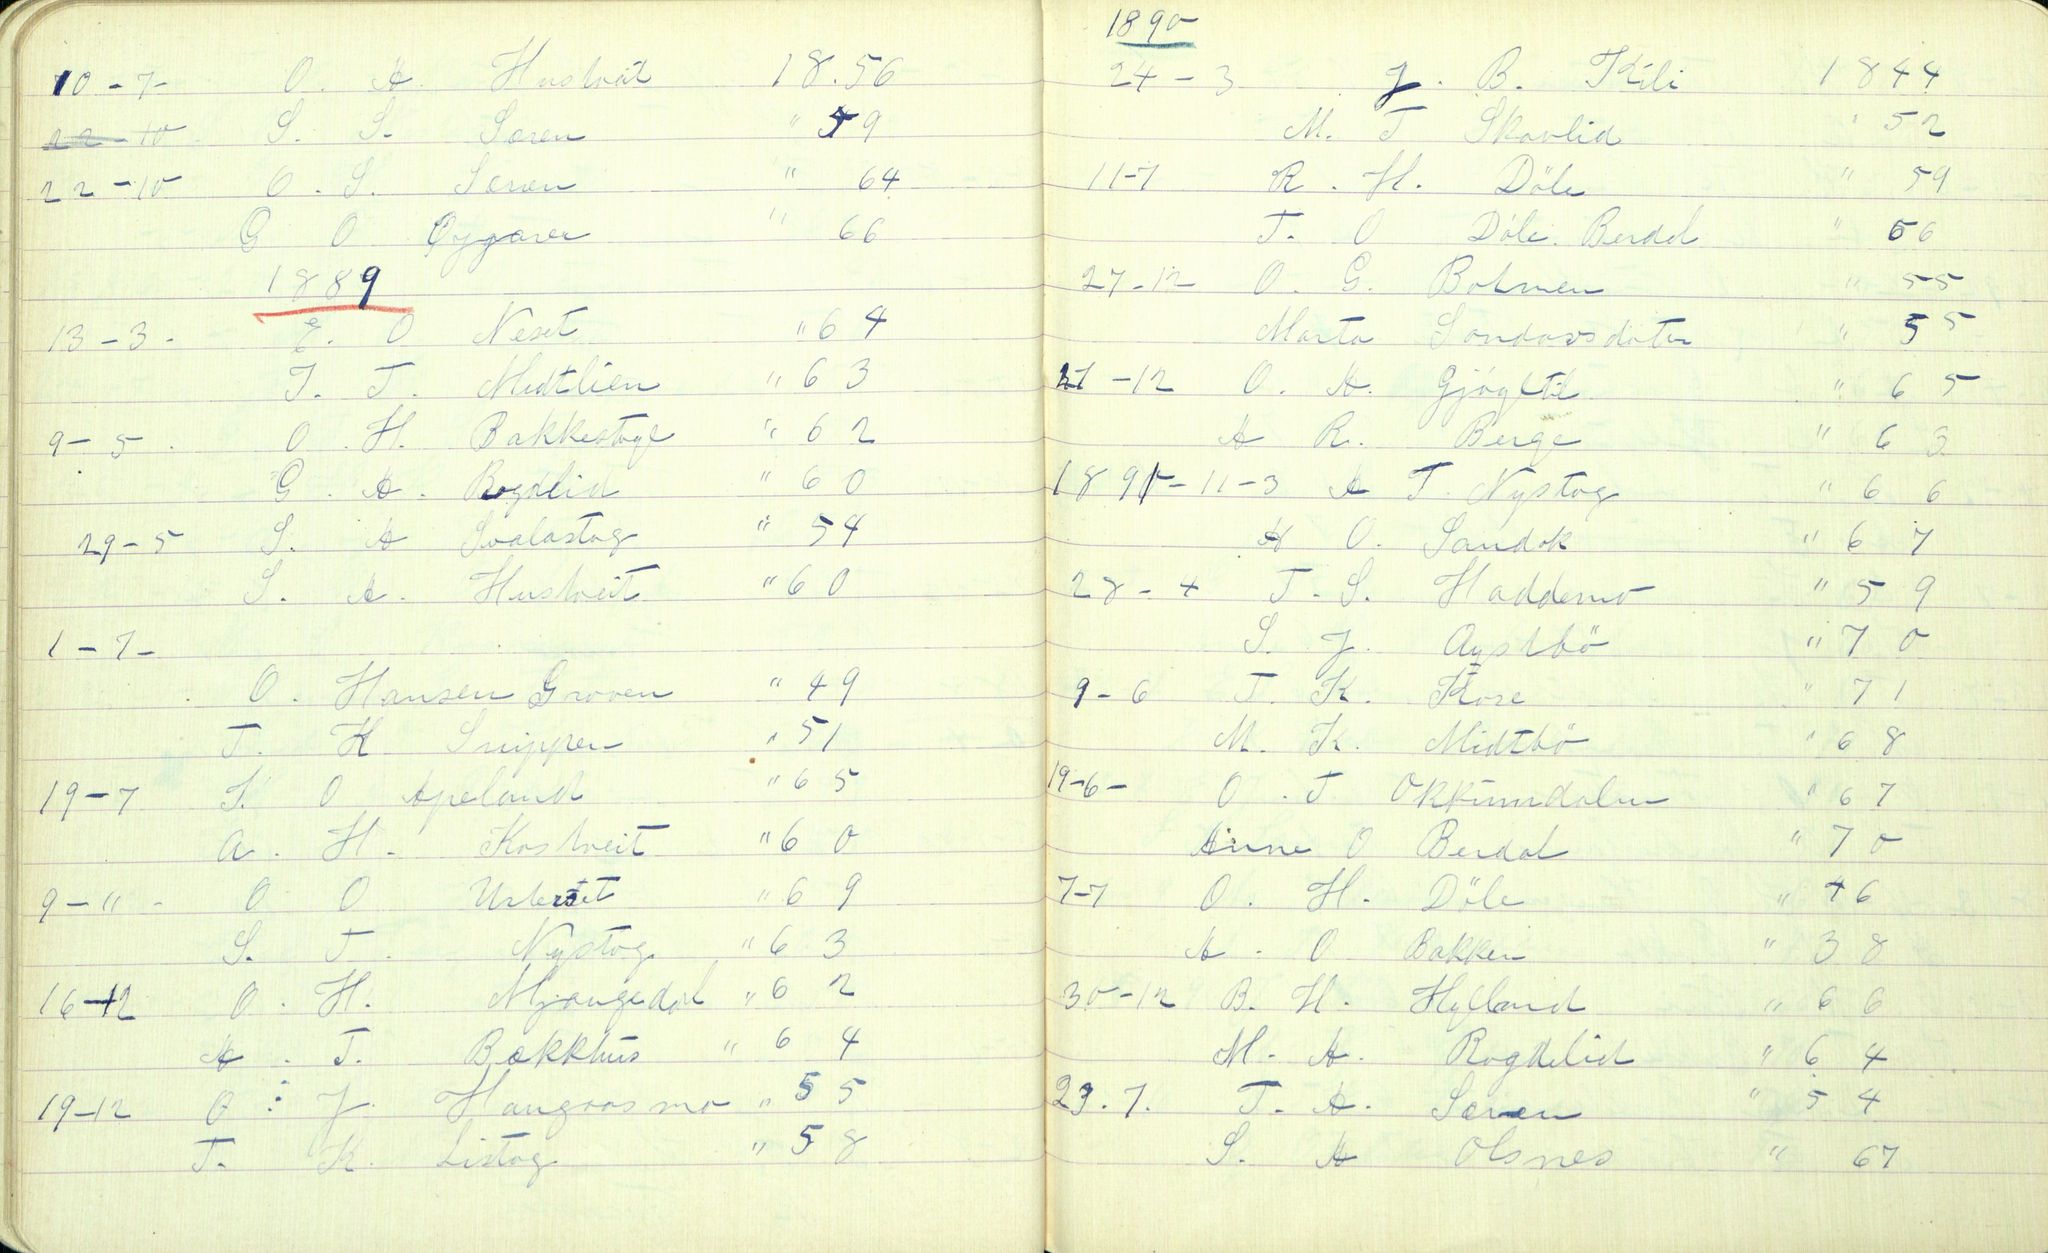 10-7- O. A. Hustveit 18.56
22-10 S. S. Særen " 49
22-10 O. S. Særen " 64
G O Øygaren " 66
1889
13-3- E. O Neset " 64
T. T. Midtlien " 63
9-5. O. H. Bakkestoge " 62
G. A. Rogdelid " 60
29-5 S. A Svalastog " 54
S. A. Hustveit " 60
1-7-
O. Hansen Groven " 49
T. K Snippen " 51
19-7 S. O Apeland " 65
A. H. Kostveit " 60
9-11- O O Urbøset " 69
S. T. Nystog " 63
16-12 O. H. Mjaugedal " 62
A. T. Bækkhus " 64
19-12 O: J. Haugaasmo " 55
T. K. Listog " 58
1890
24-3 J. B. Kili 1844
M. T Skavlid " 52
11-7 R. H. Döle " 59
T. O Döle Berdal " 56
27-12 O. G. Botnen " 55
Marta Sondavsdater " 55
27-12 O. A. Gjögltil " 65
A R. Berge " 63
1891-11-3 A T. Nystog " 66
A O. Sandok " 67
28-4 T. S. Haddemo " 59
S. J. Aystbö " 70
9-6 T. K. Kose " 71
M. K. Midtbö " 68
19-6- O. T Okkumdalen " 67
Anne O Berdal " 70
7-7 O. H. Döle " 46
A. O Bakken " 38
30-12 B. H. Hylland " 66
M. A. Rogdelid " 64
23.7. T. A. Særen " 54
S. A Olsnes " 67